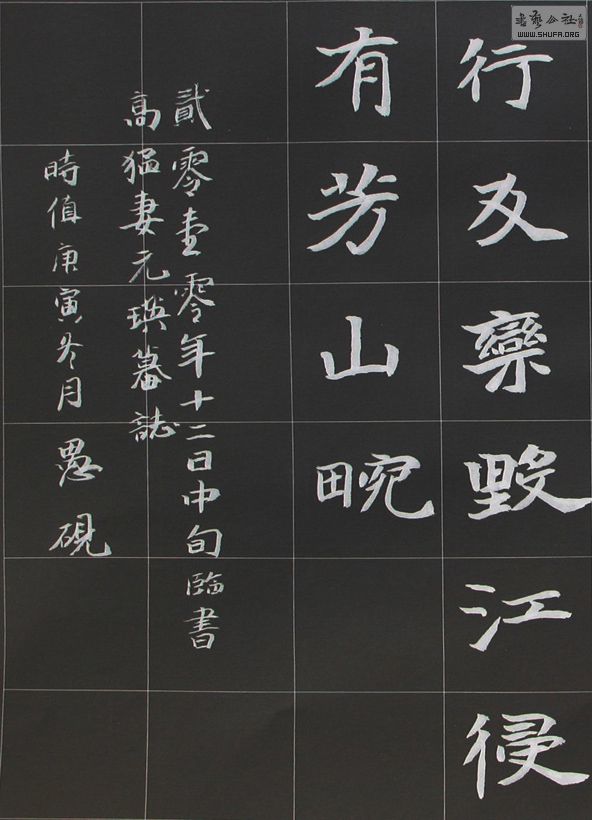 行及欒毀江侵
有芳山畹
貳零壹零年十二日中旬臨書
高猛妻元瑛墓誌
時值庚寅冬月愚硯
書藝公社
WWW.SHUFA.ORG